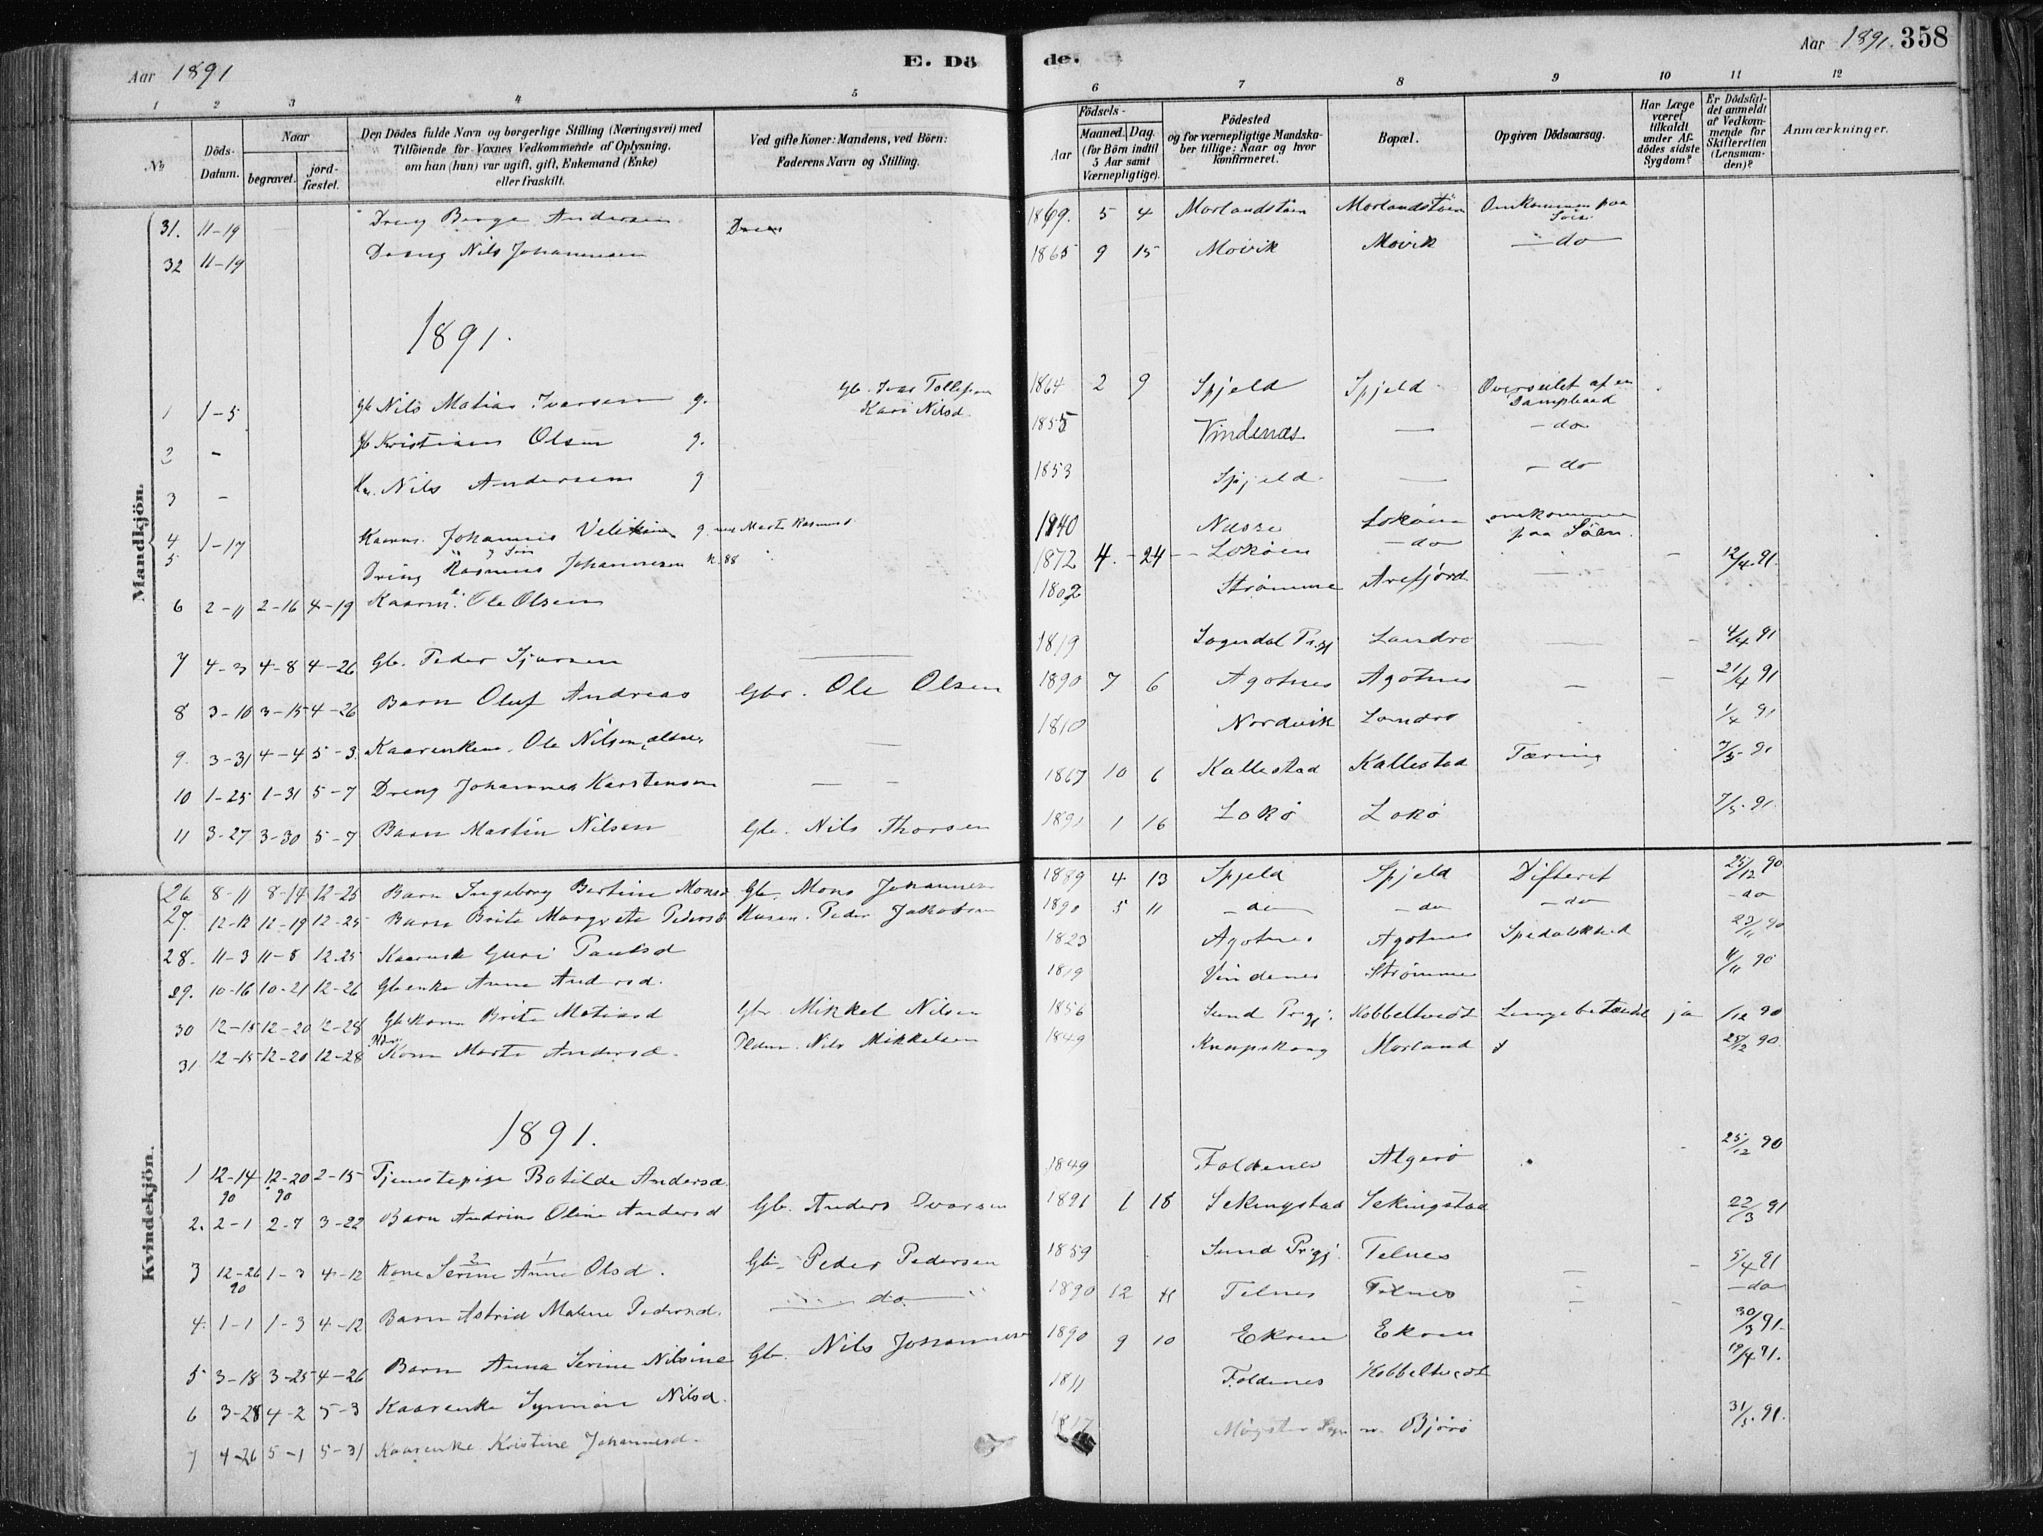 Aar 1891
E. Dö
de.
Aar 1891. 358
1 2 3 4 5 6 7 8 9 10 11 12
No
Döds-Datum.
Naar
begravet.
jord-fæstet.
Den Dödes fulde Navn og borgerlige Stilling (Næringsvei) med
Tilföiende for Voxnes Vedkommende af Oplysning,
om han (hun) var ugift, gift, Enkemand (Enke)
eller fraskilt.
Ved gifte Koner: Mandens, ved Börn:
Faderens Navn og Stilling.
Födsels-
Aar
Maaned. Dag.
(for Börn indtil
5 Aar samt
Værnepligtige).
Födested
og for værnepligtige Mandska-
ber tillige: Naar og hvor
konfirmeret.
Bopæl.
Opgiven Dödsaarsag.
Har Læge
været
tilkaldt
under Af-
dödes sidste
Sygdom?
Er Dödsfal-
det anmeldt
af Vedkom-
mende for
Skifteretten
(Lensman-
den)?
Anmærkninger.
Mandkjön.
31. 11-19 Dreng Berge Andersen 1869. 5 4 Morlandstöen Morlandstöen Omkommen paa Söen
32 11-19 Dreng Nils Johannesen 1865 9 15 Movik Movik - do
1891.
1 1-5 Gb Nils Matias Ivarsen g. Gb. Ivar Tollefsen Kari Nilsd. 1864 2 9 Spjeld Spjeld Overseilet af en Dampbaad
2 - Gb Kristian Olsen g. 1855 Vindenæs — - do
3 - Nils Andersen g 1853 Spjeld — - do
4 1-17 Johannes g. Marta Rasmusd 1840 Næsse Loköen omkommen paa Söen.
5 Dreng Rasmus Johannesen 1872 4. - 24 - Loköen - do - 12/4.91.
6 2-11 2-16 4-19 Kaarm. Ole Olsen 1802 Strömme Arefjord
7 4-3 4-8 4-26 Gb. Peder 1819 Sogndal Prgj Landro 4/4 91
8 3-10 3-15 4-26 Barn Oluf Andreas Gbr. Ole Olsen 1890 7 6 Agotnes Agotnes 21/4 91
9. 3-31 4-4 5-3. Kaarenkem. Ole Nilsen 1810 Nordvik Landro 1/4 91
10 1-25 1-31 5-7 Dreng Johannes Karstensen 1867 10 6 Kallestad Kallestad Tæring 7/5-91
11 3-27 3-30 5-7 Barn Martin Nilsen Gb. Nils Thorsen 1891 1 16 Lokö Lokö 7/5.91.
Kvindekjön.
26 8-11 8-14 12-25 Barn Ingeborg Bertine Monsd Gb. Mons Johannes 1889 4 13 Spjeld Spjeld Difterit 25/12 90
27. 12-12 12-19 12-25 Barn Brite Margrete Pedersd Husm. Peder Jakobsen 1890 5 11 - do - do - do - do
28. 11-3 11-8 12-25 Kaarenke Guri Paulsd 1823 Agotnes Agotnes Spedalskhed 23/11 90
29. 10-16 10-21 12-26 Gbenke Anna Andersd. 1819 Vindenes Strömme 11/11 90
30 12-15 12-20 12-28 Gbkone Brite Matiasd Gb. Mikkel Nilsen 1856 Sund Prgj. Kobbeltvedt Lungebetændel ja 1/12 90
31 12-15 12-20 12-28 Kone Marta Andersd. Nils Mikkelsen 1849 Knapskaug Morland 28/12 90.
1891.
1 12-14 90 12-20 90 2-15 Tjenestepige Botilde Andersd 1849 Foldenes Algerö 25/12 90
2. 2-1 2-7 3-22 Barn Andrine Oline Andersd Gb. Anders Ivarsen 1891 1 18 Sekingstad Sekingstad 22/3 91
3 12-26 90 1-3 4-12 Kone Serine Anna Olsd. Gb. Peder Pedersen 1859 Sund Prgj. Telnes 5/4 91
4. 1-1 1-3 4-12 Barn Astrid Malene Pedersd. do 1890 12 Telnes Telnes - do
5 3-18 3-25 4-26 Barn Anna Serine Nilsine Gb. Nils Johannesen 1890 9 10 Ekren Ekren 30/3 91.
6 3-28 4-2 5-3 Kaarenke Synnöve Nilsd. 1811 Foldenes Kobbeltvedt 19/4 91.
7 4-26 5-1 5-31 Kaarenke Kristine Johannesd. 1817 Mögster Bjorö 31/5.91.